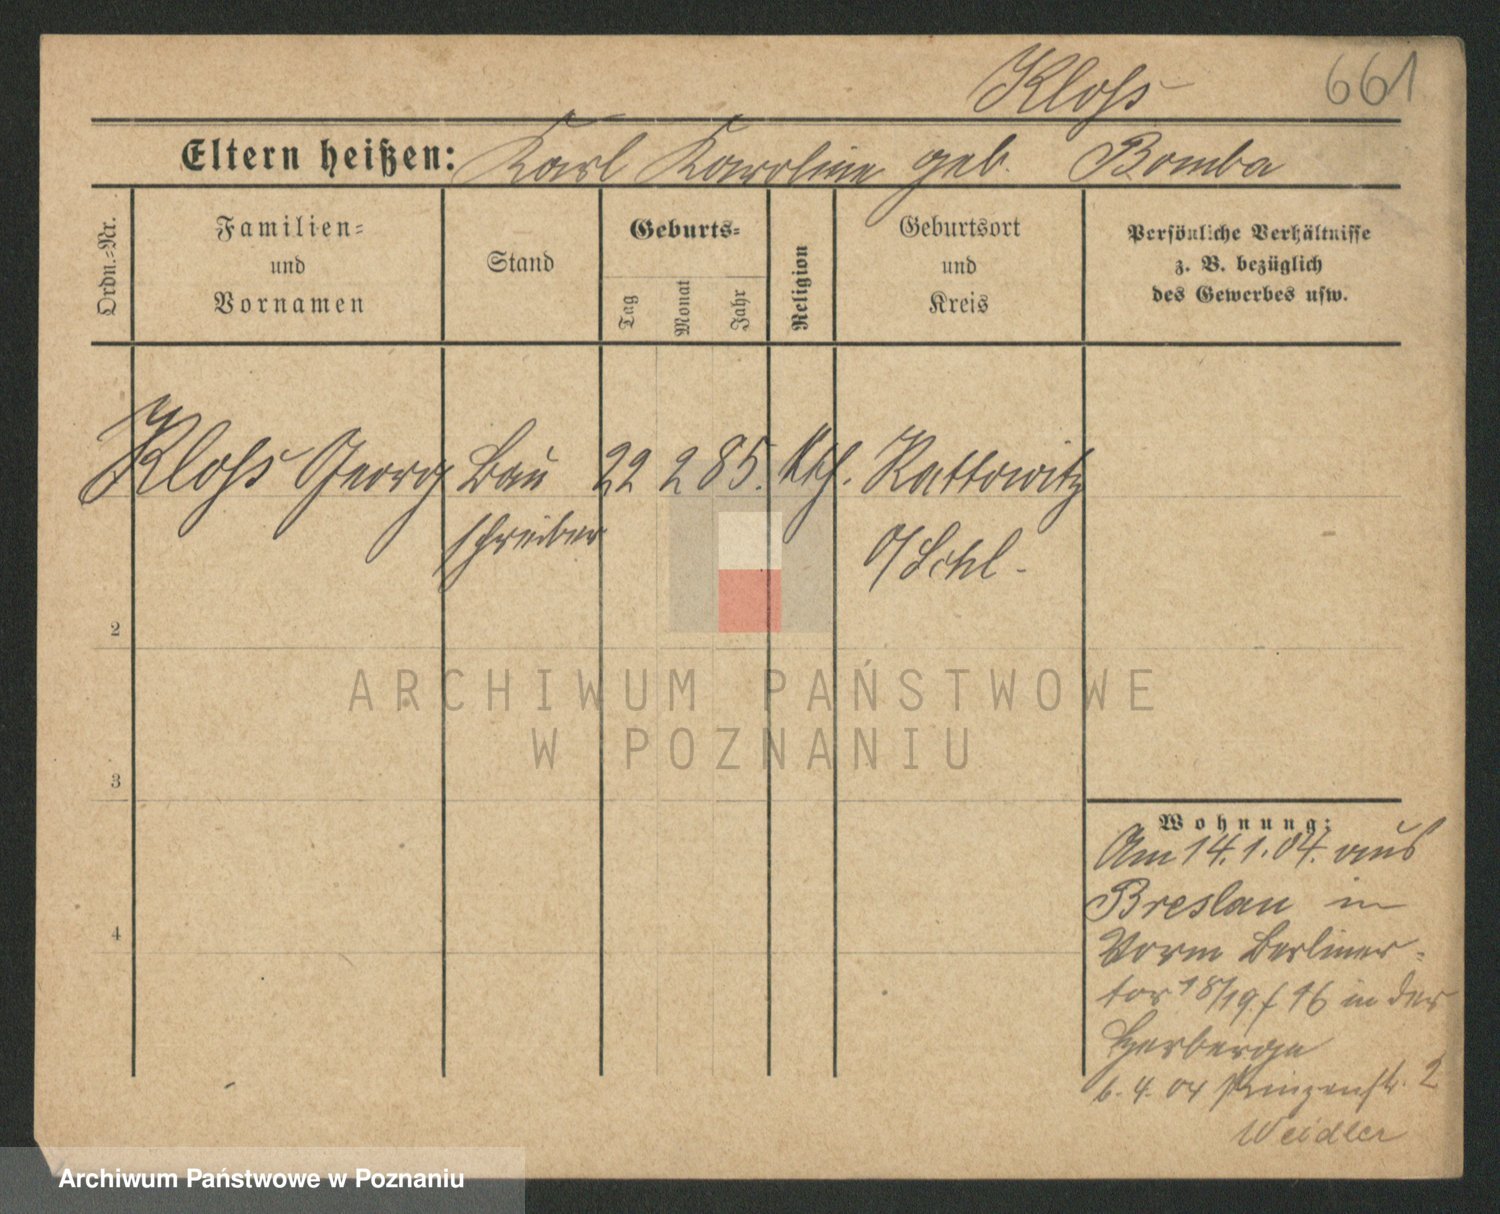 Kloss 661
Eltern heißen: Karl Karoline geb. Bomba
Ordn.-Nr.
Familien-
und
Vornamen
Stand
Geburts-
Tag
Monat
Jahr
Religion
Geburtsort
und
Kreis
Persönliche Verhältnisse
z. B. bezüglich
des Gewerbes usw.
Kloss Georg Bau 22 2 85. kth. Kattowitz
schreiber O/Schl.
2
3
4
Wohnung:
Am 14.1.04. aus
Breslau in
Vorm Berliner-
tor 18/19 f 16 in der
Herberge
6.4.04 Prinzenstr. 2
Weidler
ARCHIWUM PAŃSTWOWE
W POZNANIU
Archiwum Państwowe w Poznaniu